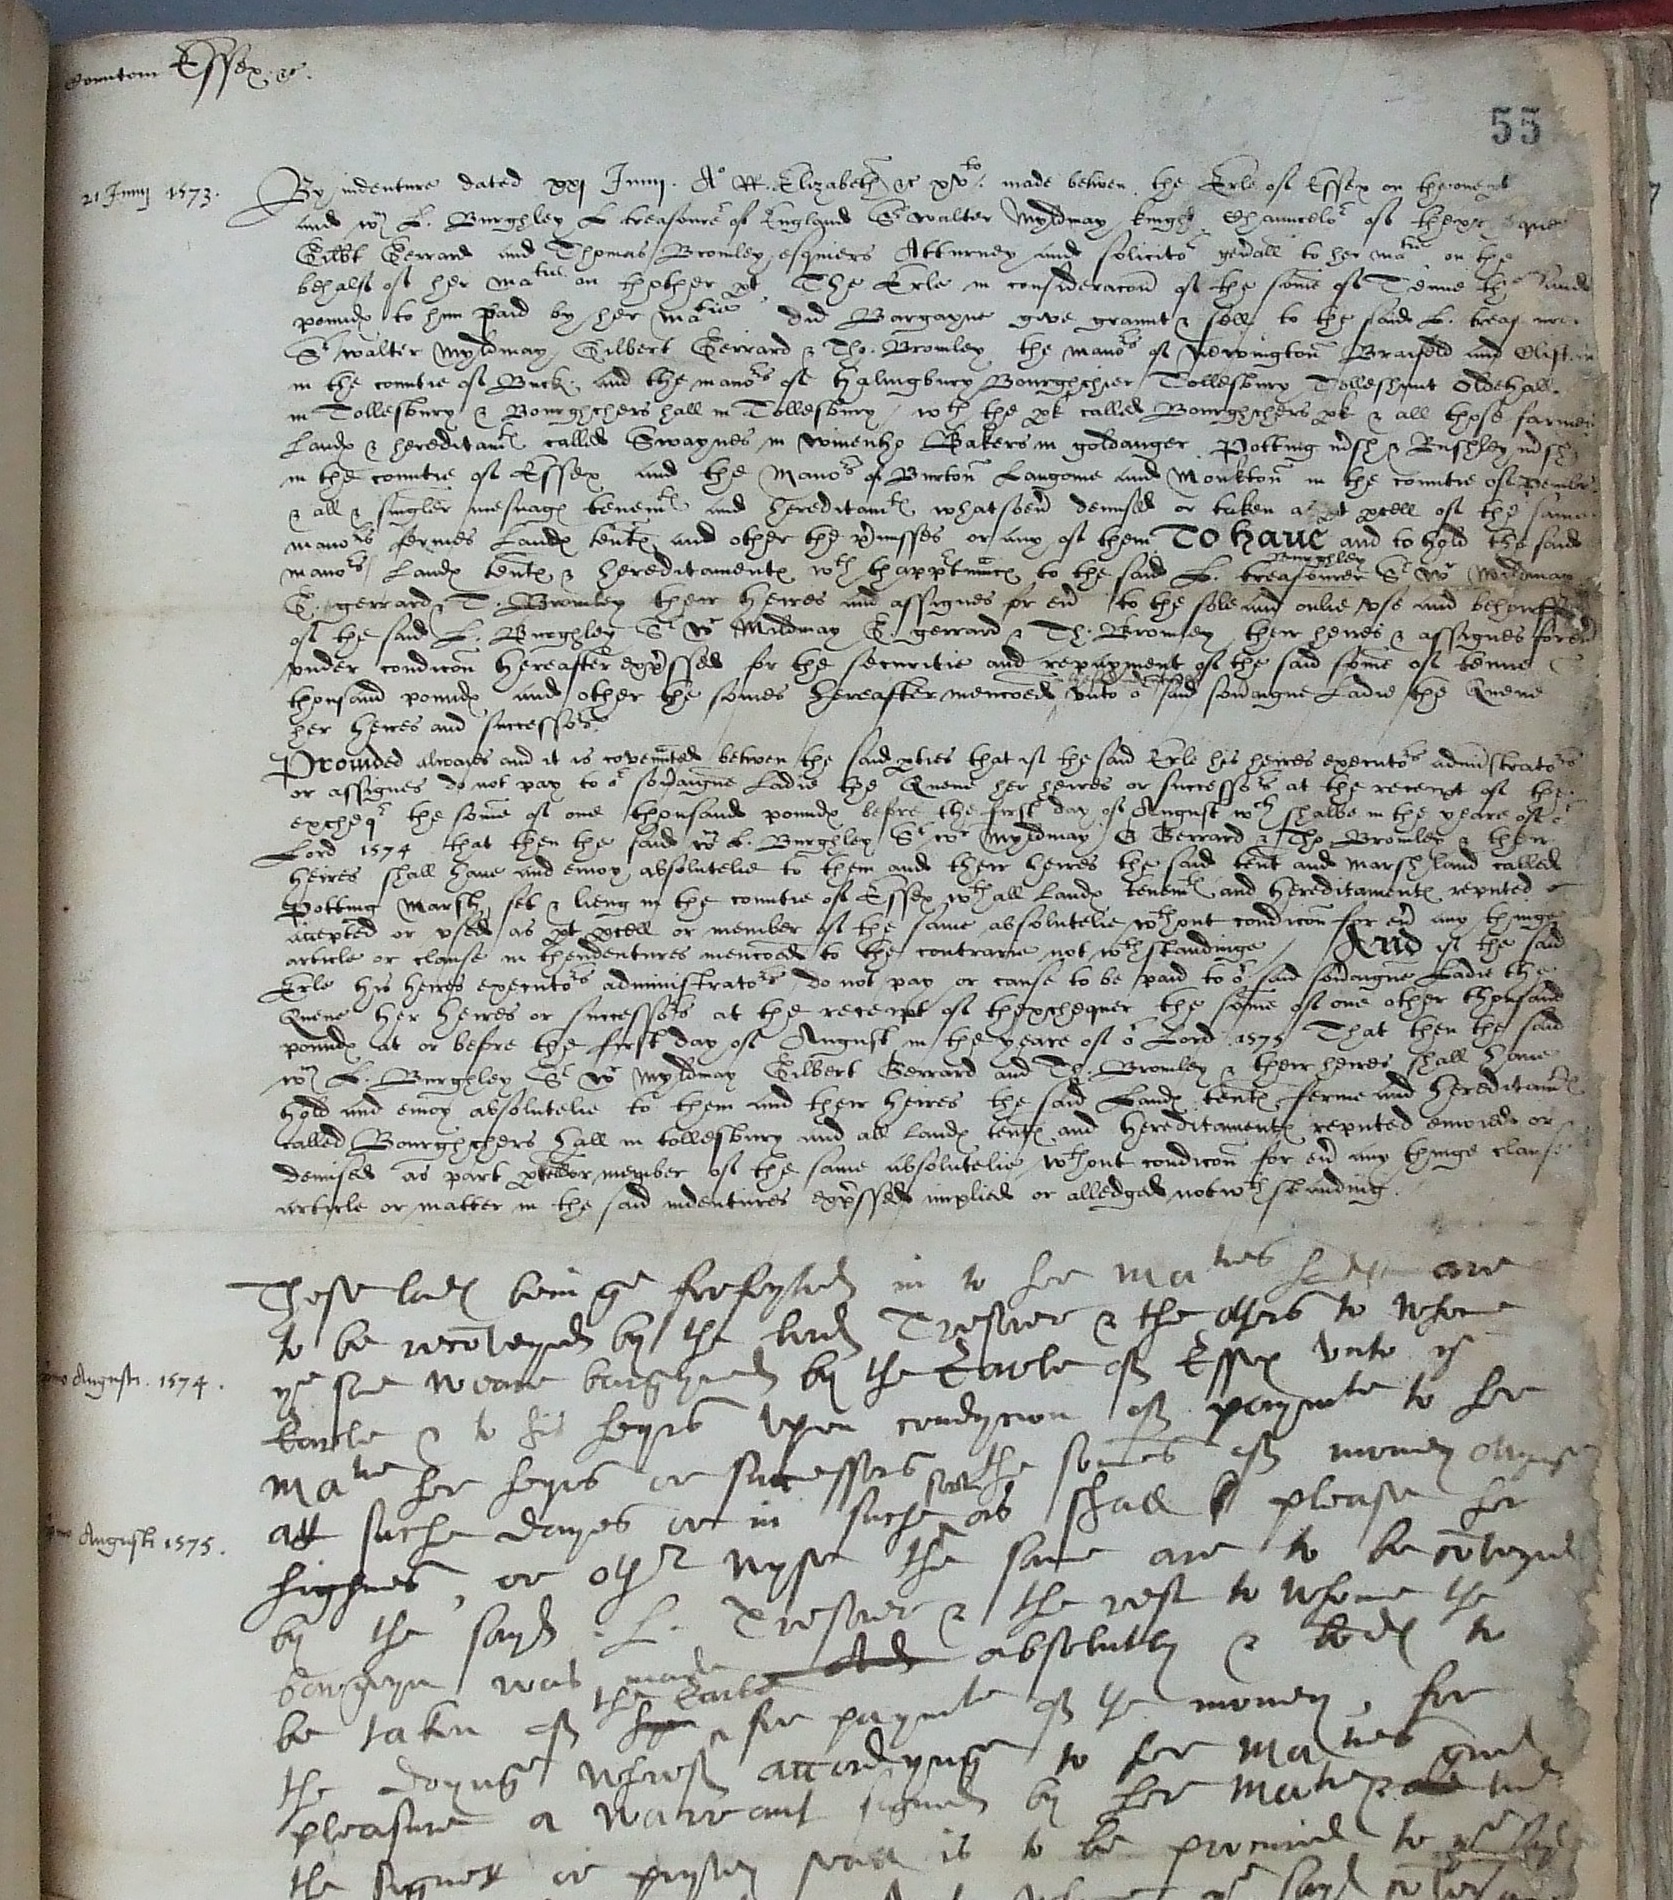 Comitem Essex &c.
55
21 Junij 1573.
By indenture dated xxj Junij. Ao RR. Elizabeth &c xvto. made betwen the Erle of Essex on thone pt
and Wm L. Burghley L. treasourer of England Sr Walter Myldmay knight Chauncelor of thexchequer
Gilbt Gerrard and Thomas Bromley esquiers Atturney and solicitor generall to her matie on the
behalf of her matie on thother pt The Erle in consideracon of the some of Tenne thousand
poundx to him paid by her matie did Bargayne give graunt & sell to the said L. treasurer
Sr Walter Myldmay Gilbert Gerrard & Tho. Bromley the manors of Newington Braifeld and Clifton
in the countie of Buck. and the manors of Halingbury Bourghchier Tollesbury Tolleshunt Oldehall
in Tollesbury & Bourghchers hall in Tollesbury / wth the pk called Bourghchers pk & all those farmes
Landx & hereditamtx called Swaynes in wivenho Bakers in goldanger Potting mrsh & Rushley mrsh
in the countie of Essex and the Manors of Burton Langome and Monkton in the countie of Pembr
& all & singler mesuagx tenemtx and hereditamtx whatsoever demised or taken as pt pcell of the same
manors fermes Landx tentx and other the premisses or any of them To have and to hold the said
manors Landx tentx & hereditamentx wth thapprtenncx to the said L. treasourer Burghley Sr Wr Mildmay
G. gerrard & T. Bromley their heires and assignes for ever to the sole and onlie vse and behouff
of the said L. Burghley Sr Wr Mildmay G. gerrard & Th. Bromley their heires & assignes for ever
vnder condicon hereafter expressed for the securitie and repayment of the said some of tenne
thousand poundx and other the somes hereafter mencoed vnto or said soveraigne Ladie the Quene
her heires and successors.
Provided alwaies and it is covennted betwen the said pties that if the said Erle his heires executors administrators
or assignes do not pay to or soveraigne Ladie the Quene her heires or successors at the receipt of the
exchequr the some of one thousand poundx before the first day of August wch shalbe in the yeare of or
Lord 1574 that then the said Wm L. Burghley Sr Wr Myldmay G Gerrard & Tho Bromley & their
heires shall have and enioy absolutelie to them and their heires the said tent and marsh land called
Potting Marsh set & lieng in the countie of Essex wth all Landx tenemtx and hereditamentx reputed
accepted or vsed as pt pcell or member of the same absolutelie wthout condicon for ever any thinge
article or clause in thendentures mencoed to the contrarie not wthstandinge / And if the said
Erle his heires executors administrators do not pay or cause to be paid to or said soveraigne Ladie the
Quene her heires or successors at the receipt of thexchequer the some of one other thousand
poundx at or before the first day of August in the yeare of or Lord 1575 That then the said
Wm L. Burghley Sr Wr Myldmay Gilbert Gerrard and Th. Bromley & their heires shall have
hold and enioy absolutelie to them and their heires the said Landx tentx ferme and hereditamtx
called Bourghchers hall in tollesbury and all landx tentx and hereditamentx reputed enioied or
demised as part pcell or member of the same absolutelie wthout condicon for ever any thinge clause
article or matter in the said indentures expressed implied or alledged notwthstanding.
These landx beinge forfeyted in to her maties handx are
to be reconveyed by the lord Tresorer & the others to whome
ye same weare bargyned by the Earle off Essex vnto ye
primo Augusti. 1574.
Earle & to his heyrs vpon condycion off paymte to her
matie her heyrs or successors the somes off money
att suche dayes or in suche sort as shall please her
primo Augusti 1575.
highnes, or otherwyse the same are to be conveyed
by the sayd L. Tresorer & the rest to whome the
bargeyn was made absolutly & bondx to
be taken off the Earle for paymte off the money, for
the doynge wheroff accordynge to her maties
pleasure a warrant signed by her matie
the signet or pryvey seall is to be procured to ye